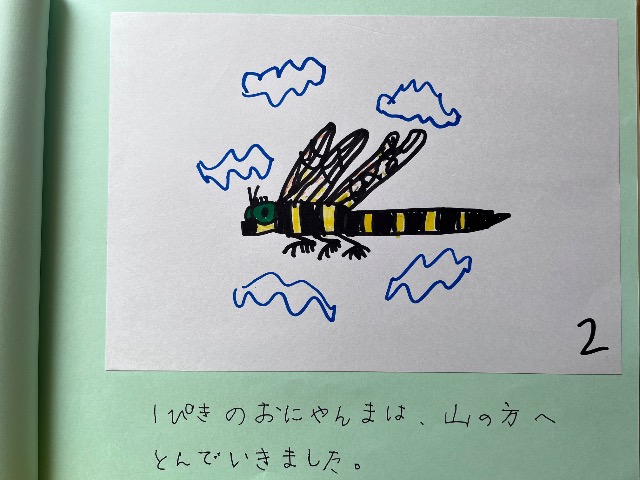 2
1ぴきのおにやんまは、山の方へ
とんでいきました。